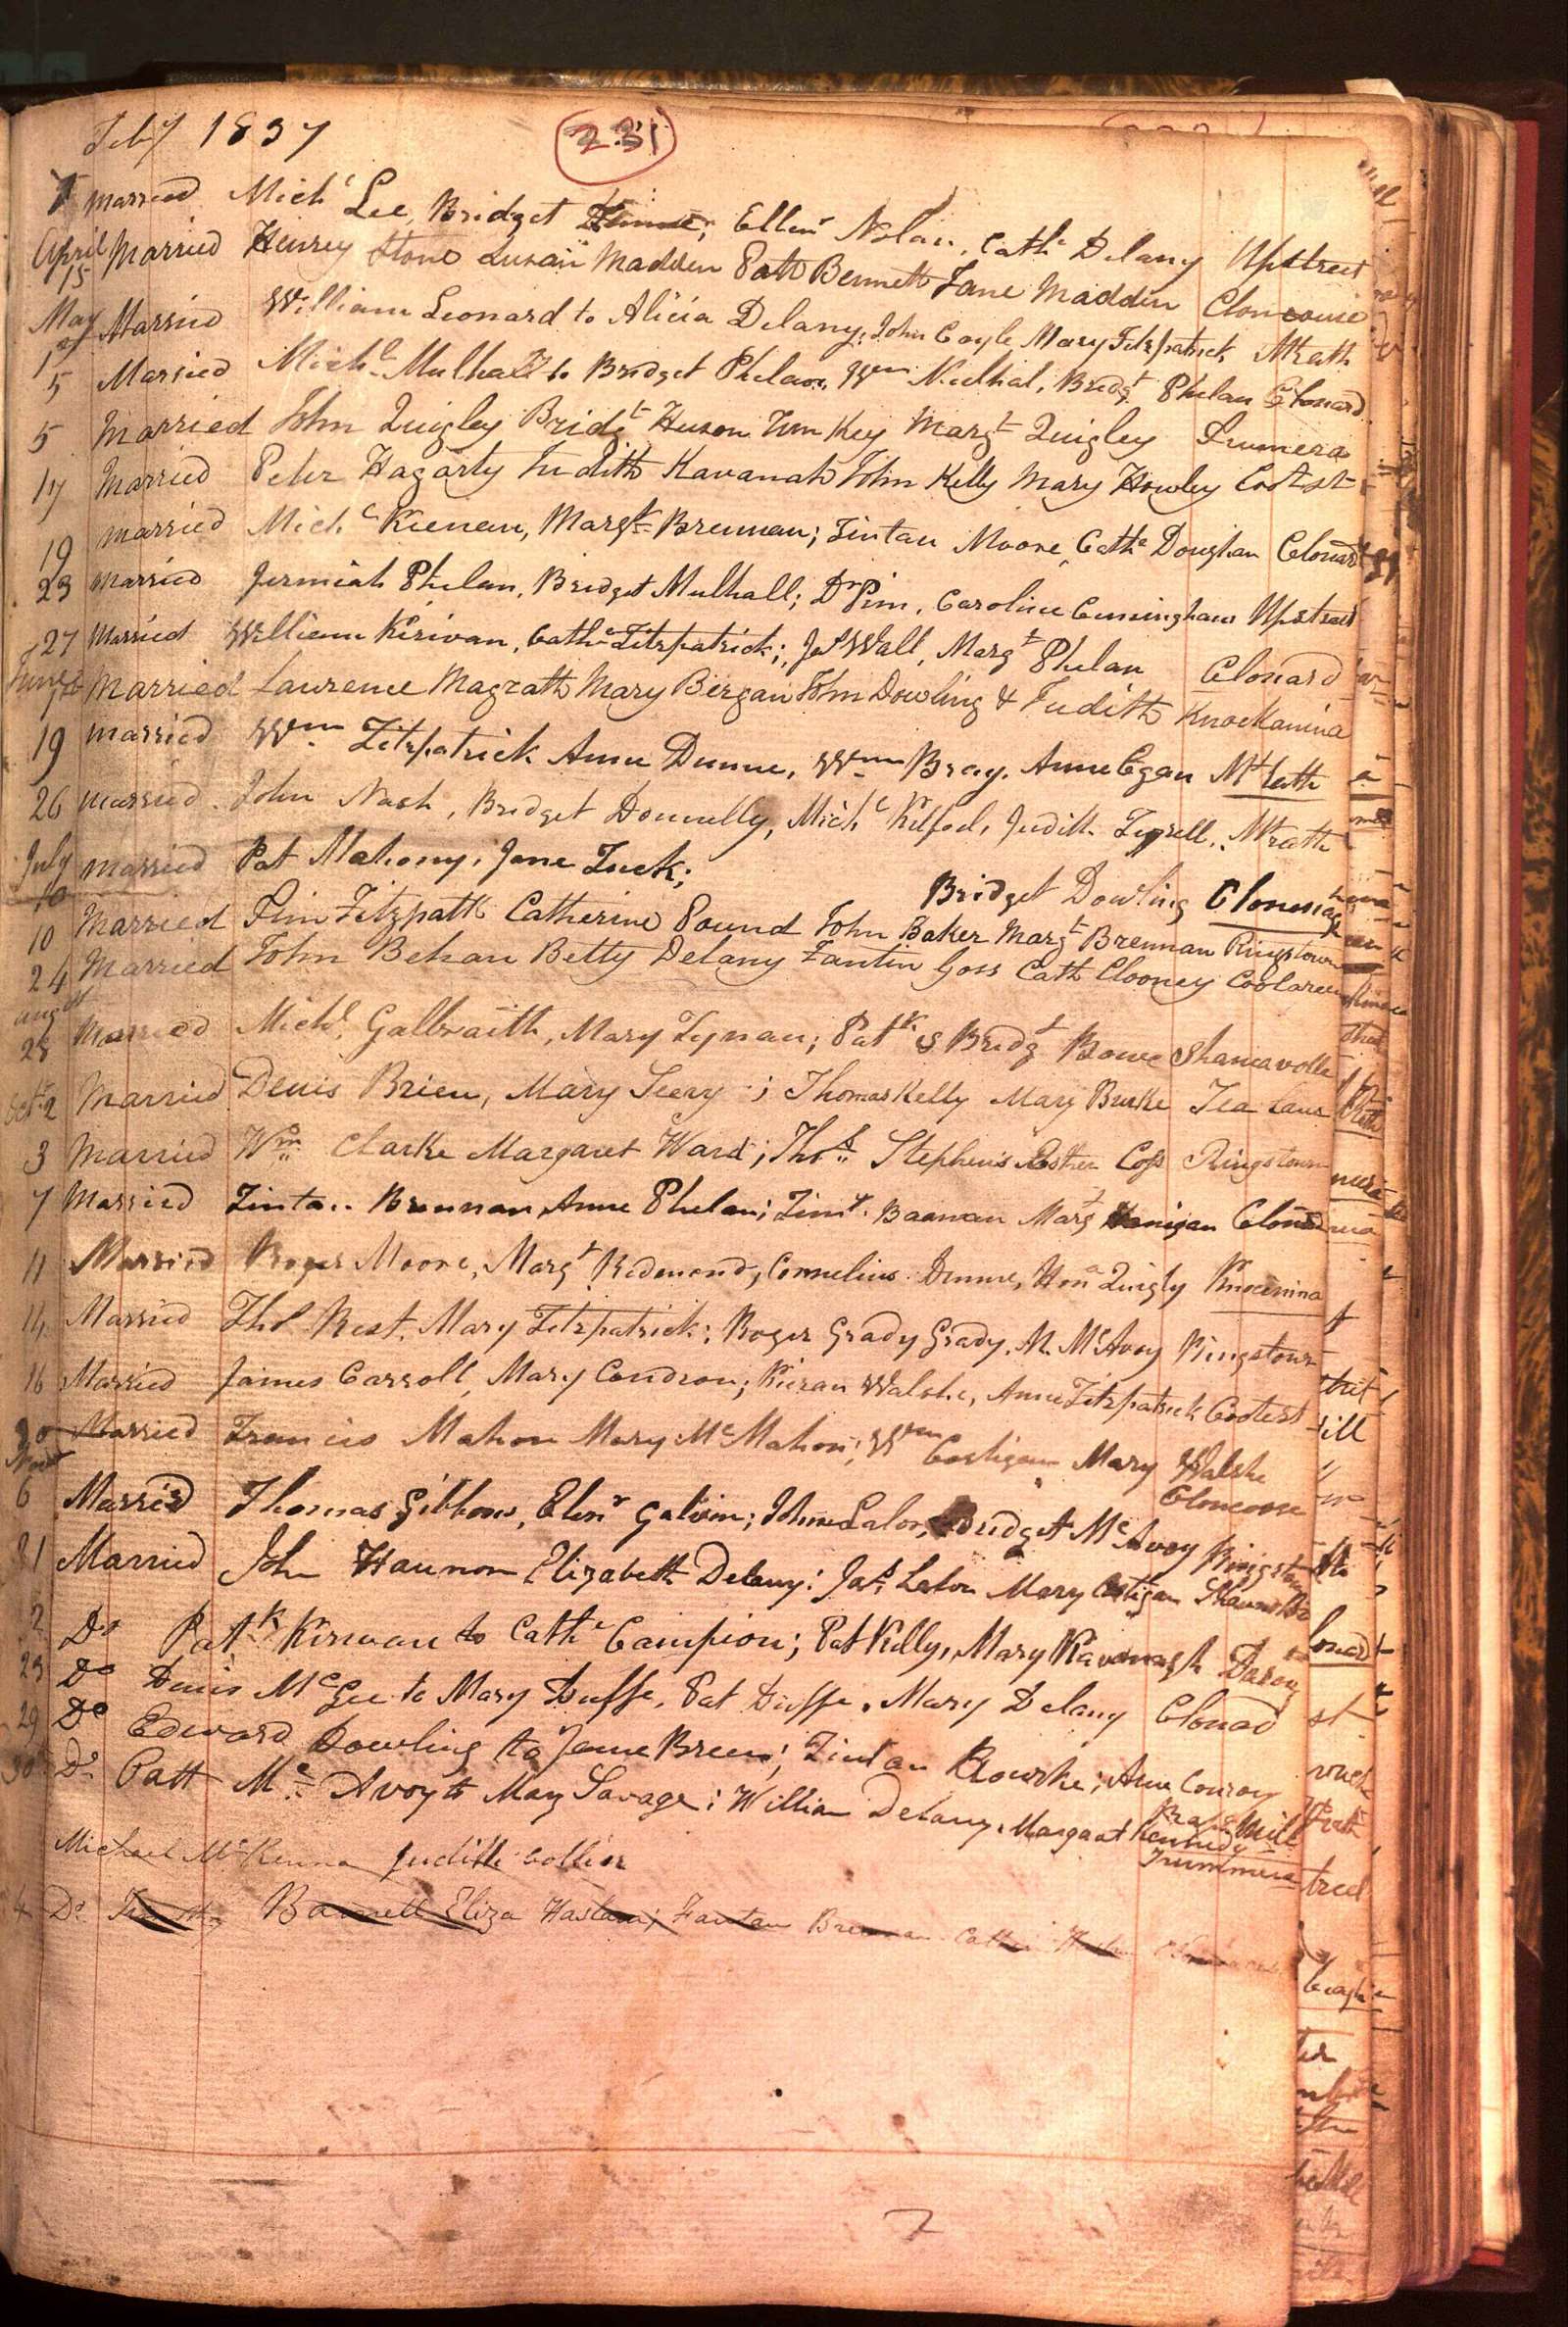 Feby 1837
231
7 married Michl Lee, Bridget Ellenr Nolan, Cathe Delany Upstreet
April 15 Married Henrey Stone Susan Madden Patt Bennett Jane Madden Cloncouse
May 1st Married William Leonard to Alicia Delany, John Coyle Mary Fitzpatrick Mtrath
5 Married Michl Mulhall to Bridget Phelan, Wm Bridgt Phelan Clonard
5 Married John Quigley Bridgt Huson Tim Key Margt Quigley Trumera
17 Married Peter Hagarty Judith Kavanah John Kelly Mary Howley Cootst
19 married Michl Kienen, Margt Brennan; Fintan Moore, Cathe Doughan Clonard
23 Married Jermiah Phelan, Bridget Mulhall; Dr Pim, Caroline Cuningham Upstreet
27 Married William Kirivan, Cathe Fitzpatrick; Jas Wall, Margt Phelan Clonard
June Married Laurence Magrath Mary Bergan John Dowling & Judith Knockanina
19 married Wm Fitzpatrick Anne Dunne, Wm Bray. Anne Egan Mtrath
26 married. John Nash, Bridget Donnelly, Michl Kilfoil, Judith Tyrell. Mtrath
July 10 married Pat Mahony, Jane Tuck; Bridget Dowling Clonenagh
10 Married Tim Fitzpatk Catherine Pound John Baker Margt Brennan Ringstown
24 Married John Behan Betty Delany Fantin Goss Cath Clooney
Augst 28 Married Michl Galbraith, Mary Tynan; Patk & Bridgt Bowe Shanavolle
Octr 2 Married Denis Brien, Mary Seery; Thomas Kelly Mary Burke Tea Lane
3 Married Wm Clarke Margaret Ward; Thos Stephens Esther Coss Ringstown
7 Married Finta.. Brennan Anne Phelan; Timy. Margt Clonard
11 Married Roger Moore, Margt Redmond, Cornelius Dunne, Hona Quigly Knocnina
14 Married Thos Rest, Mary Fitzpatrick; Roger Grady Grady, M. McAvoy Ringstown
16 Married James Carroll, Mary Condron; Kieran Walshe, Anne Fitzpatrick Cootest
30 Married Francis Mahon Mary McMahon; Wm Costigan Mary Walshe
Cloncoose
Novr 6 Married Thomas Gibbons, Elenr Galvin; John Lalor, Bridget McAvoy Ringstown
21 Married John Hannon Elizabeth Delany: Jas. Lalor Mary Costigan
2 Do Patk Kirwan to Cathe Campion; Pat Kelly, Mary Kavanagh
23 Do Denis McGee to Mary Duffe, Pat Duffe, Mary Delany Clonad
29 Do Edward Dowling to Jane Breen; Fintan Rourke; Anne Conroy
Mill
30 Do Patt McAvoy to Mary Savage; William Delany, Margaret Kennedy
Trummera
Michael McKenna Judith Collier
4 Do Timothy Barnell Eliza Haslam; Fantan Brennan